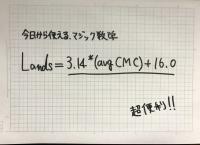 今日から使える、マジック数学
Lands = 3.14*(avg CMC)+16.0
超便利!!